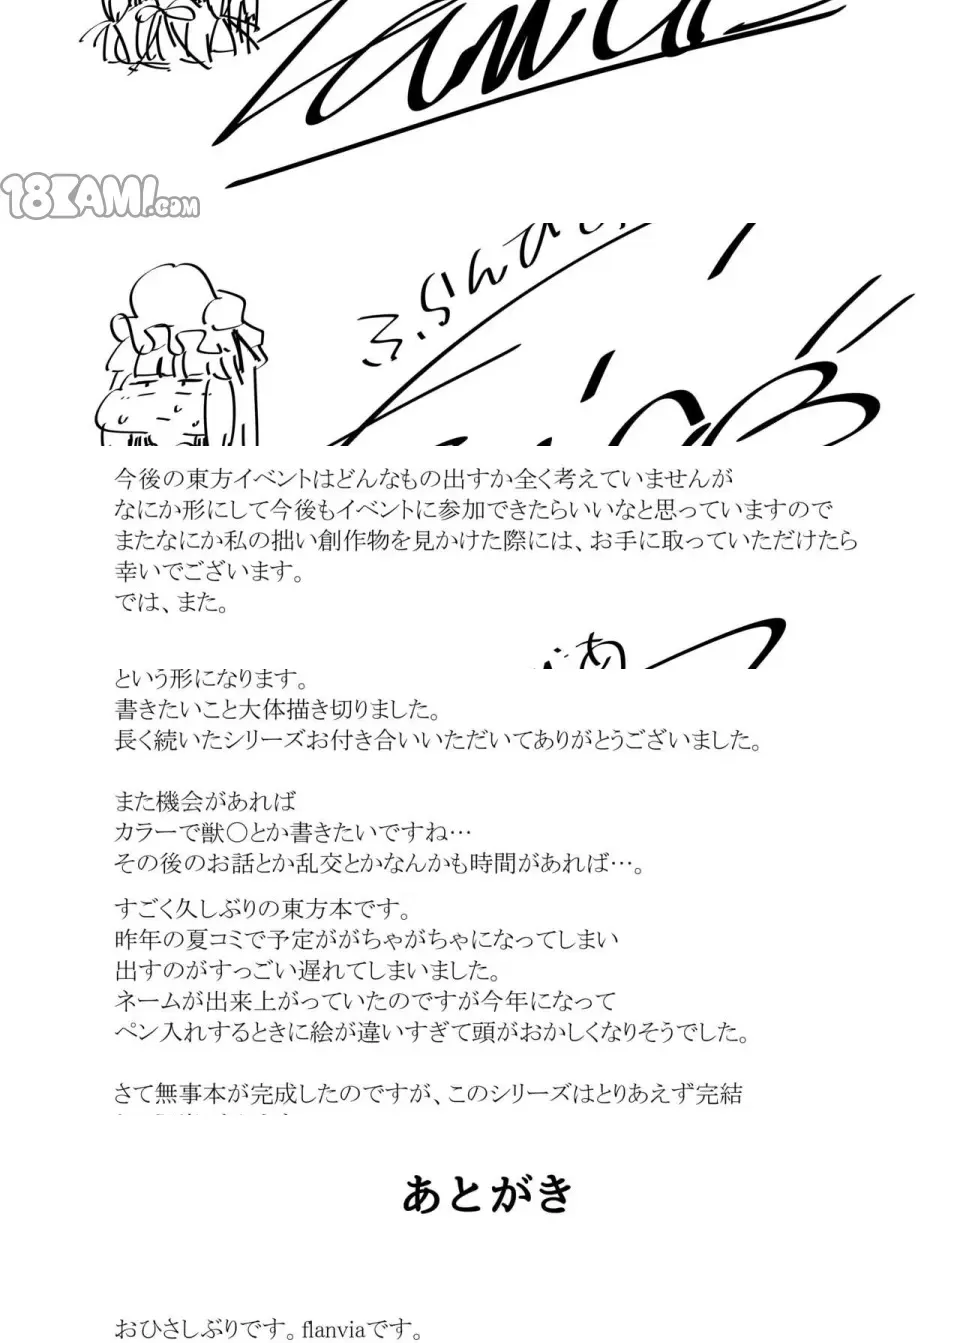 18KAMI.COM
ふらんびあ
今後の東方イベントはどんなもの出すか全く考えていませんが
なにか形にして今後もイベントに参加できたらいいなと思っていますので
またなにか私の拙い創作物を見かけた際には、お手に取っていただけたら
幸いでございます。
では、また。
という形になります。
書きたいこと大体描き切りました。
長く続いたシリーズお付き合いいただいてありがとうございました。
また機会があれば
カラーで獣〇とか書きたいですね…
その後のお話とか乱交とかなんかも時間があれば…。
すごく久しぶりの東方本です。
昨年の夏コミで予定ががちゃがちゃになってしまい
出すのがすっごい遅れてしまいました。
ネームが出来上がっていたのですが今年になって
ペン入れするときに絵が違いすぎて頭がおかしくなりそうでした。
さて無事本が完成したのですが、このシリーズはとりあえず完結
あとがき
おひさしぶりです。flanviaです。